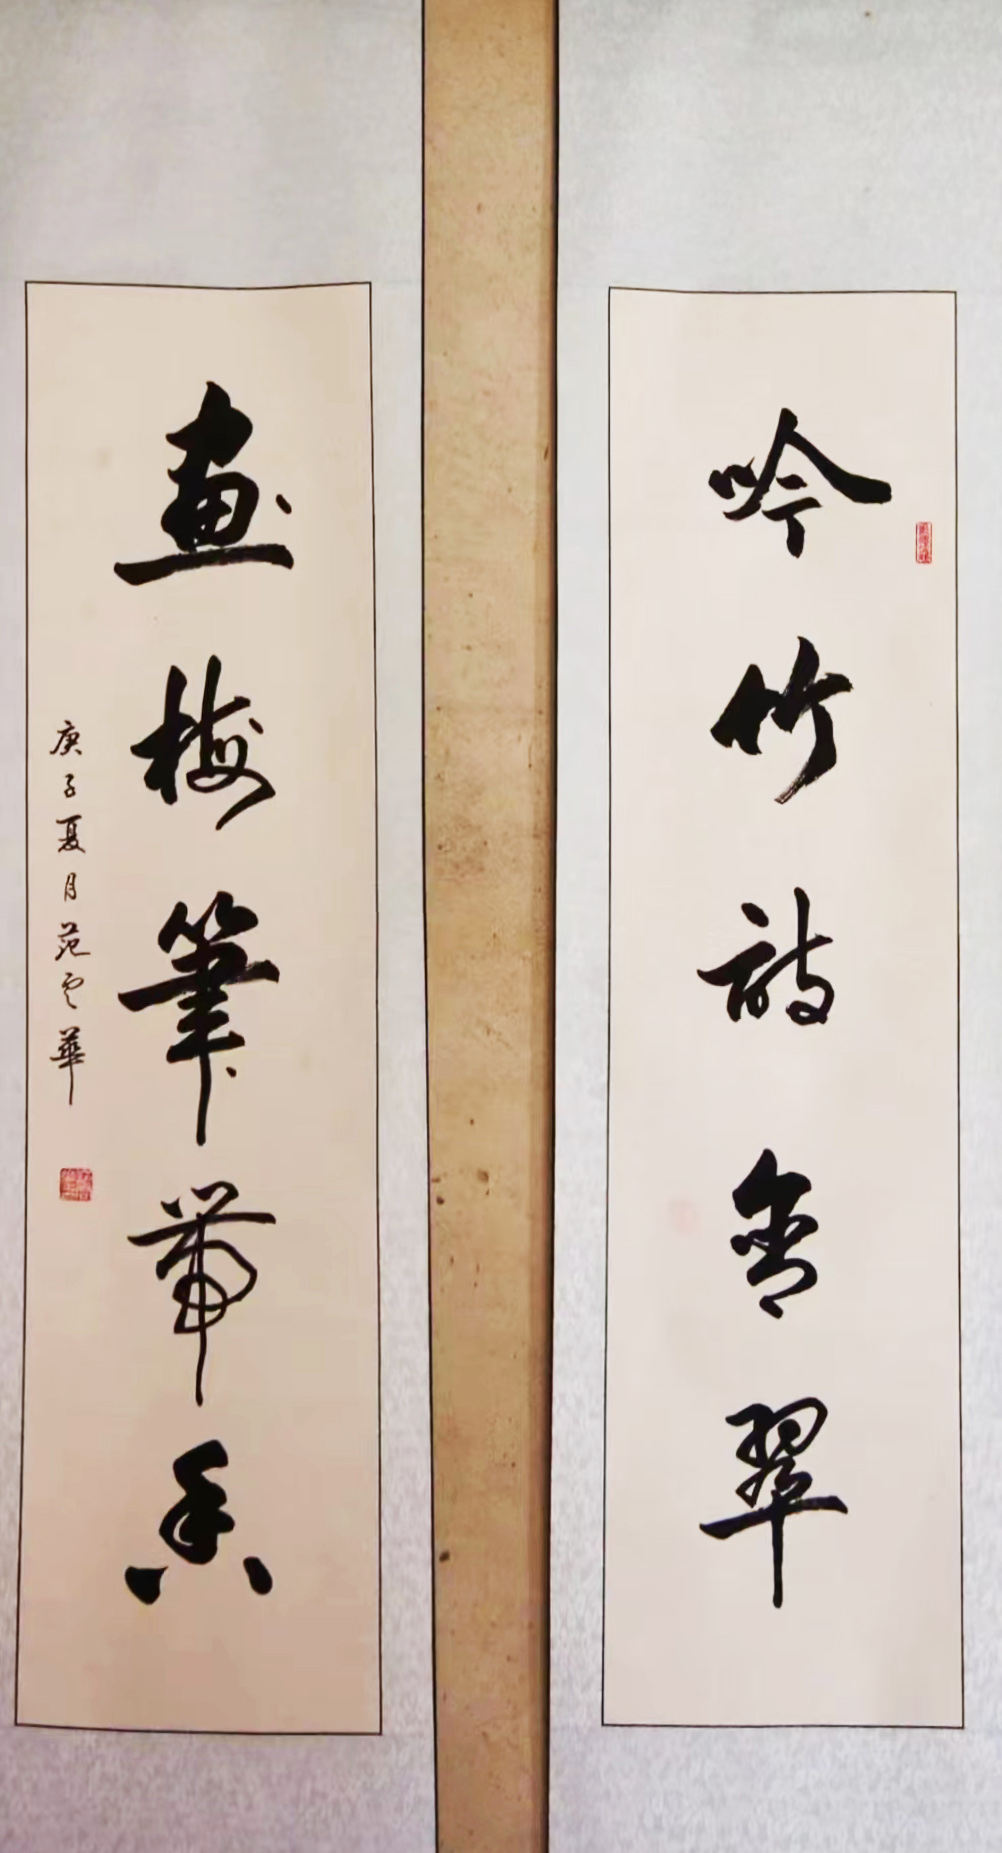 吟竹詩含翠
畫梅筆帶香
庚子夏月范雲華